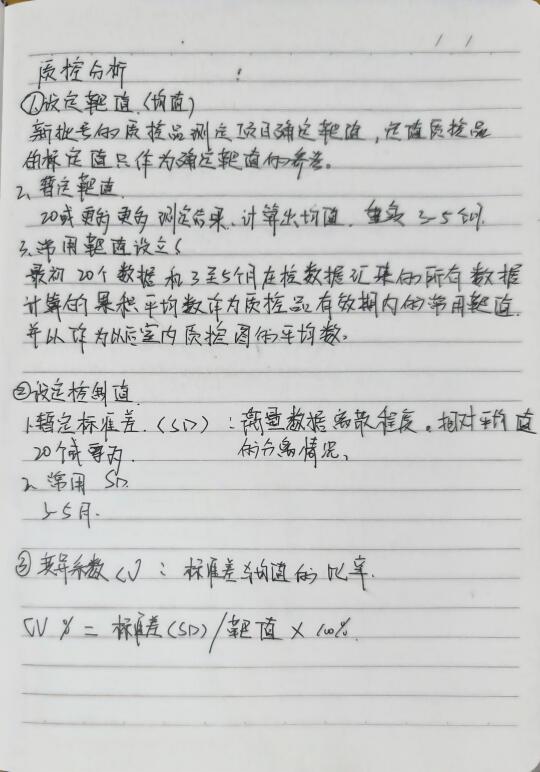 质控分析
①设定靶值(均值)
新批号的质控品测定项目确定靶值,定值质控品
的标定值只作为确定靶值的参考。
2、暂定靶值
20或更多更多测定结果、计算出均值. 3-5个月.
3、常用靶值设定(
最初20个数据和3至5个月在控数据汇集的所有数据
计算的累积平均数作为质控品有效期内的常用靶值.
并以作为以后室内质控图的平均数。
②设定控制值
1.暂定标准差.(SD):衡量数据离散程度。相对平均值
20个或更多. 的分离情况、
2、常用 SD.
3-5月.
③变异系数CV:标准差与均值的比率.
CV % = 标准差(SD)/靶值 × 100%.